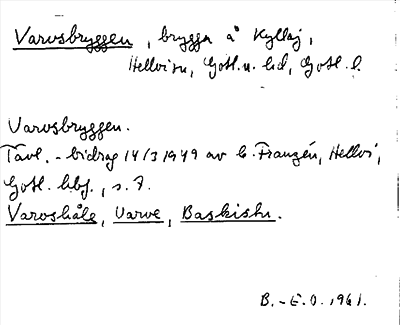 Varvsbryggen, brygga å Kyllaj,
Hellvi sn, Gotl. n. hd, Gotl. l.
Varvsbryggen.
Tävl.-bidrag 14/3 1949 av C. Franzén, Hellvi,
Gotl. hbf., s. 7.
Varvshåle, Varve, Baskishu.
B.-E.O. 1961.